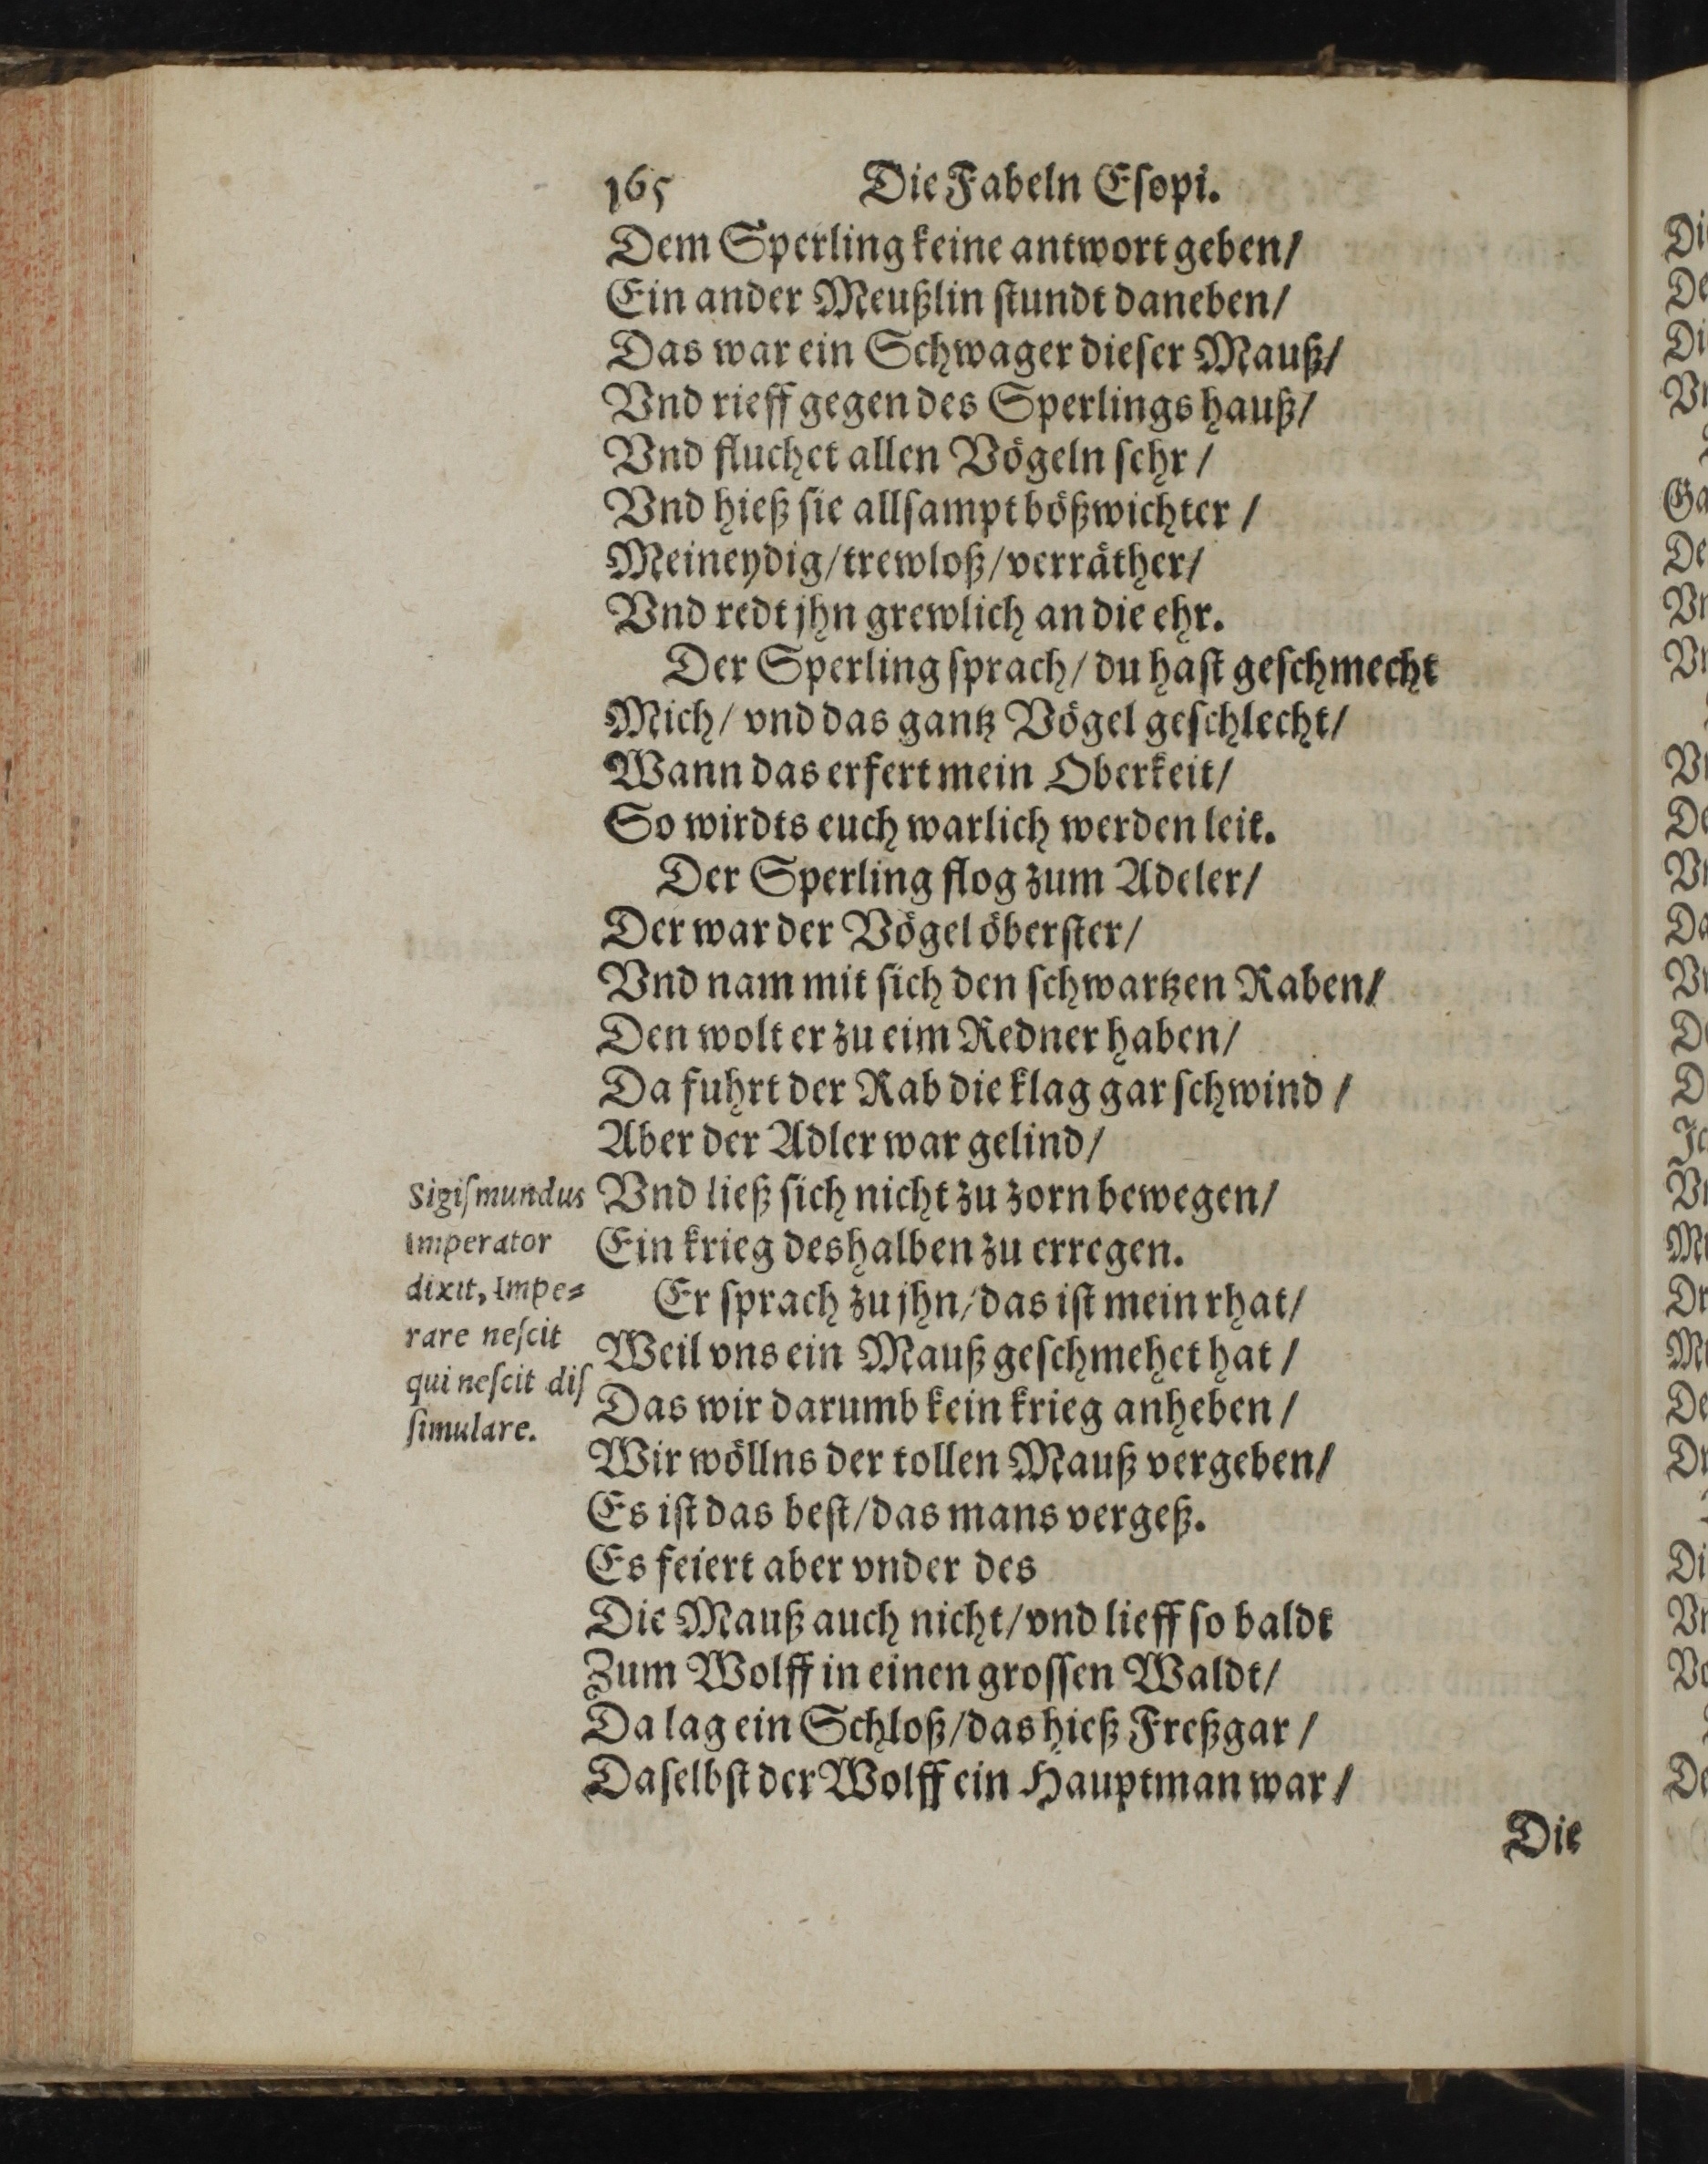 165 Die Fabeln Eſopi.
Dem Sperling keine antwort geben/
Ein ander Meußlin ſtundt daneben/
Das war ein Schwager dieſer Mauß/
Vnd rieff gegen des Sperlings hauß/
Vnd fluchet allen Vögeln ſehr /
Vnd hieß ſie allſampt bößwichter /
Meineydig/trewloß/verräther/
Vnd redt jhn grewlich an die ehr.
Der Sperling ſprach/ du haſt geſchmecht
Mich/ vnd das gantz Vögel geſchlecht/
Wann das erfert mein Oberkeit/
So wirdts euch warlich werden leit.
Der Sperling flog zum Adeler/
Der war der Vögel öberſter/
Vnd nam mit ſich den ſchwartzen Raben/
Den wolt er zu eim Redner haben/
Da fuhrt der Rab die klag gar ſchwind /
Aber der Adler war gelind/
Vnd ließ ſich nicht zu zorn bewegen/
Ein krieg deshalben zu erregen.
Er ſprach zu jhn/das iſt mein rhat/
Weil vns ein Mauß geſchmehet hat /
Das wir darumb kein krieg anheben /
Wir wöllns der tollen Mauß vergeben/
Es iſt das beſt/das mans vergeß.
Es feiert aber vnder des
Die Mauß auch nicht/vnd lieff ſo baldt
Zum Wolff in einen groſſen Waldt/
Da lag ein Schloß/das hieß Freßgar /
Daſelbſt der Wolff ein Hauptman war /
Die
Sigiſmundus
Imperator
dixit, Impe-
rare neſcit
qui neſcit diſ
ſimulare.